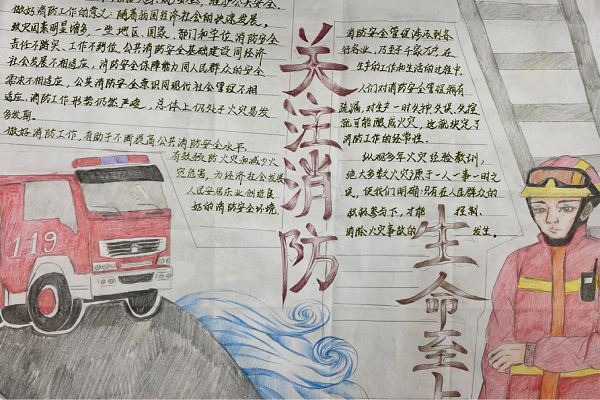 做好消防工作的意义:随着我国经济社会的快速发展,
致灾因素明显增多,一些地区、国家、部门和单位,消防安全
责任不落实、工作不到位,公共消防安全基础建设同经济
社会发展不相适应,消防安全保障能力同人民群众的安全
需求不相适应,公共消防安全意识同现代社会管理不相
适应,消防工作形势仍然严峻,总体上仍处于火灾易发
多发期。
做好消防工作,有助于不断提高公共消防安全水平,
有效预防火灾和减少火
灾危害,为经济社会发展
人民安居乐业创造良
好的消防安全环境.
关注消防
消防安全管理涉及到各
行各业,乃至千家万户,在
生产的工作和生活的过程中,
人们对消防安全管理稍有
疏漏,对生产一时失神失误、失控
就可能酿成火灾,这就决定了
消防工作的经常性.
纵观多年火灾经验教训,
绝大多数火灾源于一人一事一时之
误,使我们明确:只有在人民群众的
积极参与下,才能 控制、
消除火灾事故的 发生。
生命至上
119